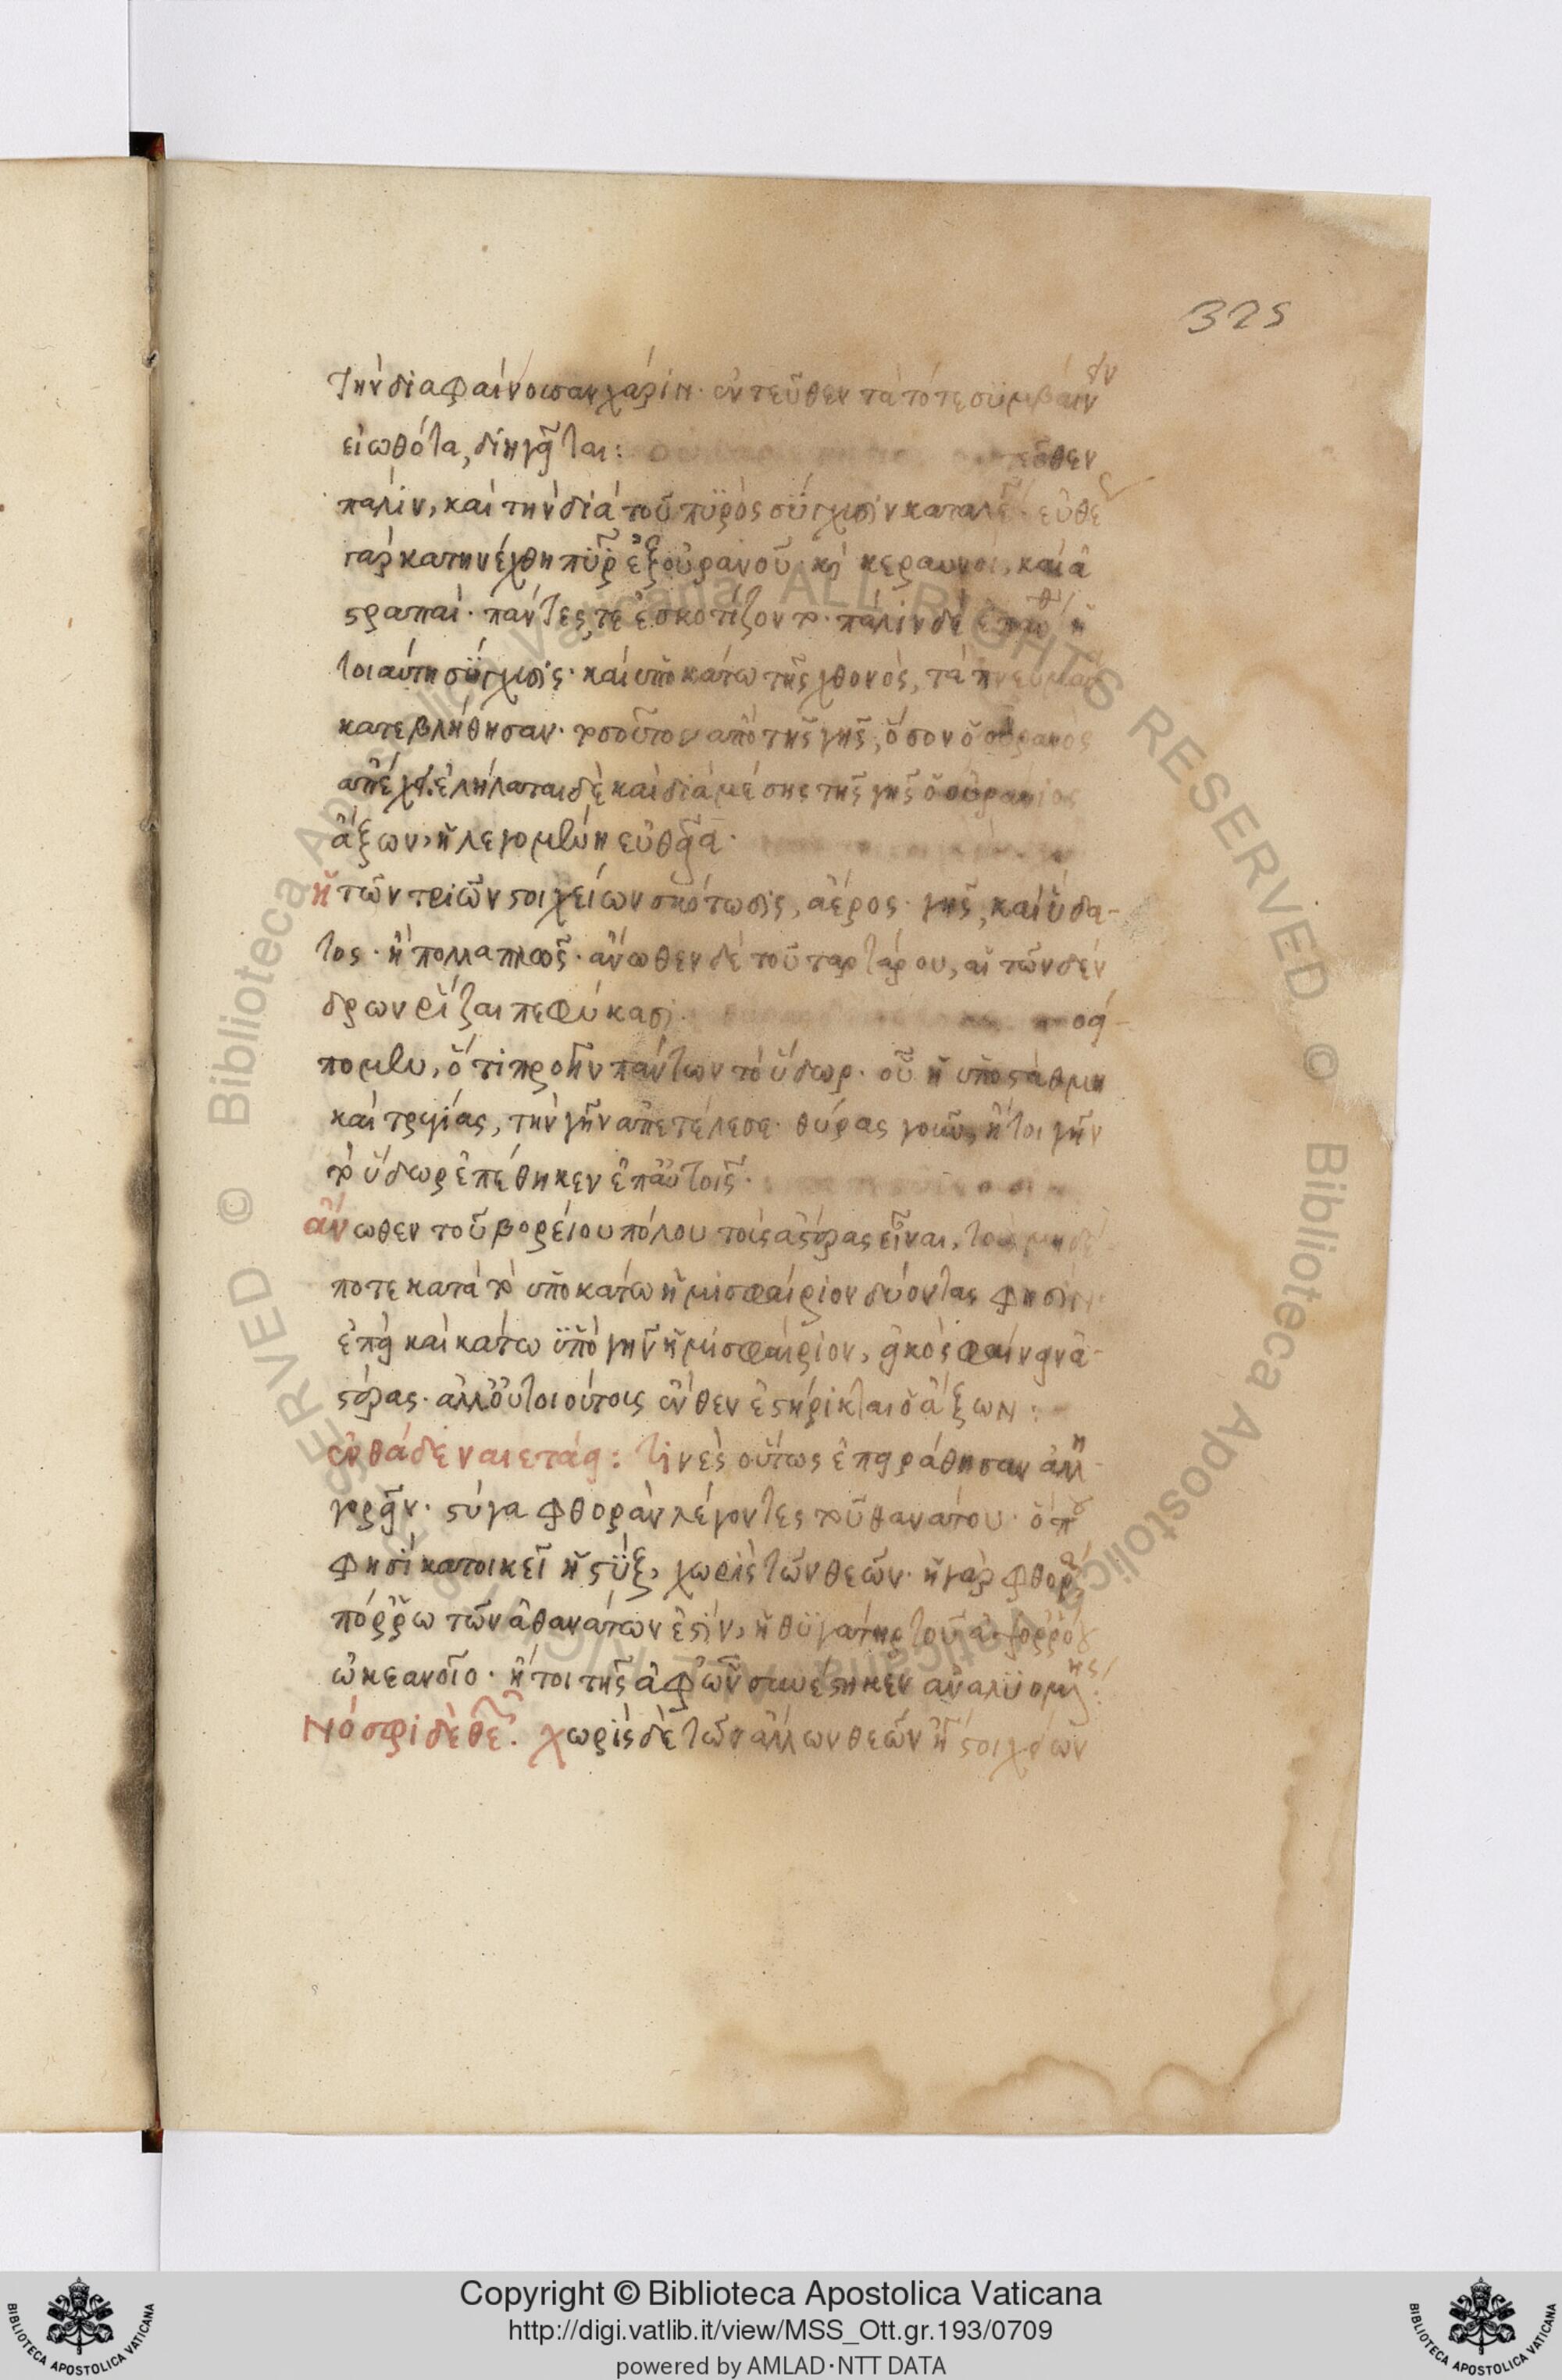 325
τὴν διαφαίνουσαν χάριν. ἐντεῦθεν τὰ τότε συμβαίνειν
εἰωθότα, διηγεῖται:
πάλιν, καὶ τὴν διὰ τοῦ πυρὸς σύγχυσιν
γὰρ κατηνέχθη πῦρ ἐξ οὐρανοῦ καὶ κεραυνοὶ, καὶ ἀ
στραπαί. πάντες τε ἐσκοτίζοντο. πάλιν δὲ ἡ
τοιαύτη σύγχυσις. καὶ ὑποκάτω τῆς χθονὸς, τὰ πνεύματα
κατεβλήθησαν. τοσοῦτον ἀπὸ τῆς γῆς, ὅσον ὁ οὐρανὸς
ἀπέχει. ἐλήλαται δὲ καὶ διὰ μέσης τῆς γῆς ὁ οὐράνιος
ἄξων, ἡ λεγομένη εὐθεῖα.
ἡ τῶν τριῶν στοιχείων σκότωσις, ἀέρος. γῆς, καὶ ὕδα-
τος. ἢ πολλαπλῶς. ἄνωθεν δὲ τοῦ ταρτάρου, αἱ τῶν δέν
δρων ῥίζαι πεφύκασι.
πομεν, ὅτι πρὸ ἦν πάντων τὸ ὕδωρ. οὗ ἡ ὑποστάθμη
καὶ τρυγίας, τὴν γῆν ἀπετέλεσε. θύρας γοῦν, ἤτοι γῆν
τὸ ὕδωρ ἐπέθηκεν ἐπ' αὐτοῖς.
ἄνωθεν τοῦ βορείου πόλου τοὺς ἀστέρας εἶναι, τοὺς μηδέ
ποτε κατὰ τὸ ὑποκάτω ἡμισφαίριον δύοντας φησίν.
ἐπεὶ καὶ κάτω ὑπὸ γῆν ἡμισφαίριον, εἰκὸς φαίνειν ἀ-
στέρας. ἀλλ' οὗτοι οὕτως ἔνθεν ἐστήρικται ὁ ἄξων:
ἐνθάδε ναιετάει: τινὲς οὕτως ἐπειράθησαν ἀλλη
γορεῖν. στύγα φθορὰν λέγοντες τοῦ θανάτου. ὅπου
φησὶ κατοικεῖ ἡ στὺξ, χωρὶς τῶν θεῶν. ἡ γὰρ φθορὰ
πόρρω τῶν ἀθανάτων ἐστὶν, ἡ θυγάτηρ τοῦ ἀψορρόου
ὠκεανοῖο. ἤτοι τῆς ἀφ' ὧν συνέστηκεν ἀναλυομένης:
Νόσφι δὲ θεῶν. χωρὶς δὲ τῶν ἄλλων θεῶν ἢ στοιχείων
Copyright © Biblioteca Apostolica Vaticana
http://digi.vatlib.it/view/MSS_Ott.gr.193/0709
powered by AMLAD·NTT DATA